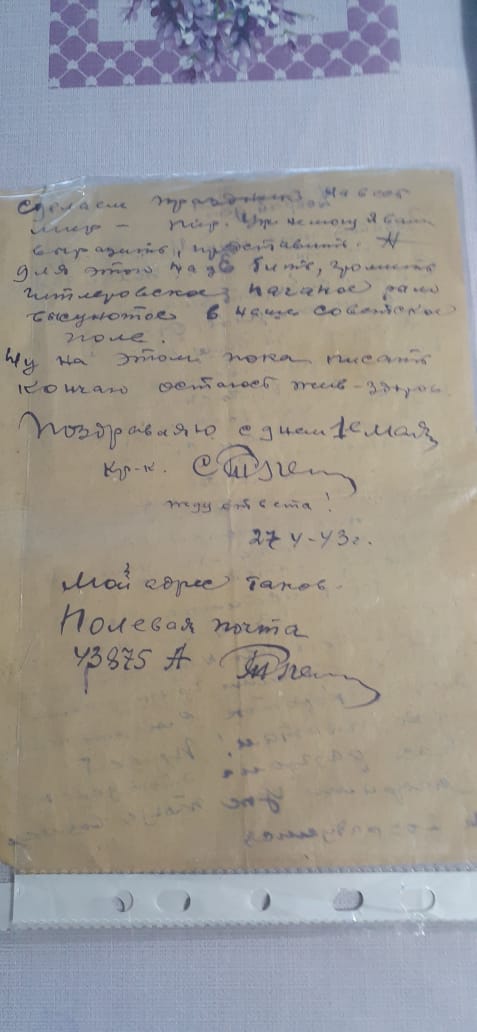 сделаем праздник на весь
мир – пир. Уж не могу я вам
выразить, представить. А
для этого надо бить, громить
гитлеровское поганое рыло
высунотое в наше советское
поле.
Ну на этом пока писать
кончаю остаюсь жив-здоров
Поздравляю с днем 1е мая
кр-к.
жду ответа!
27 4-43г.
Мой адрес таков.
Полевая почта
43875 А